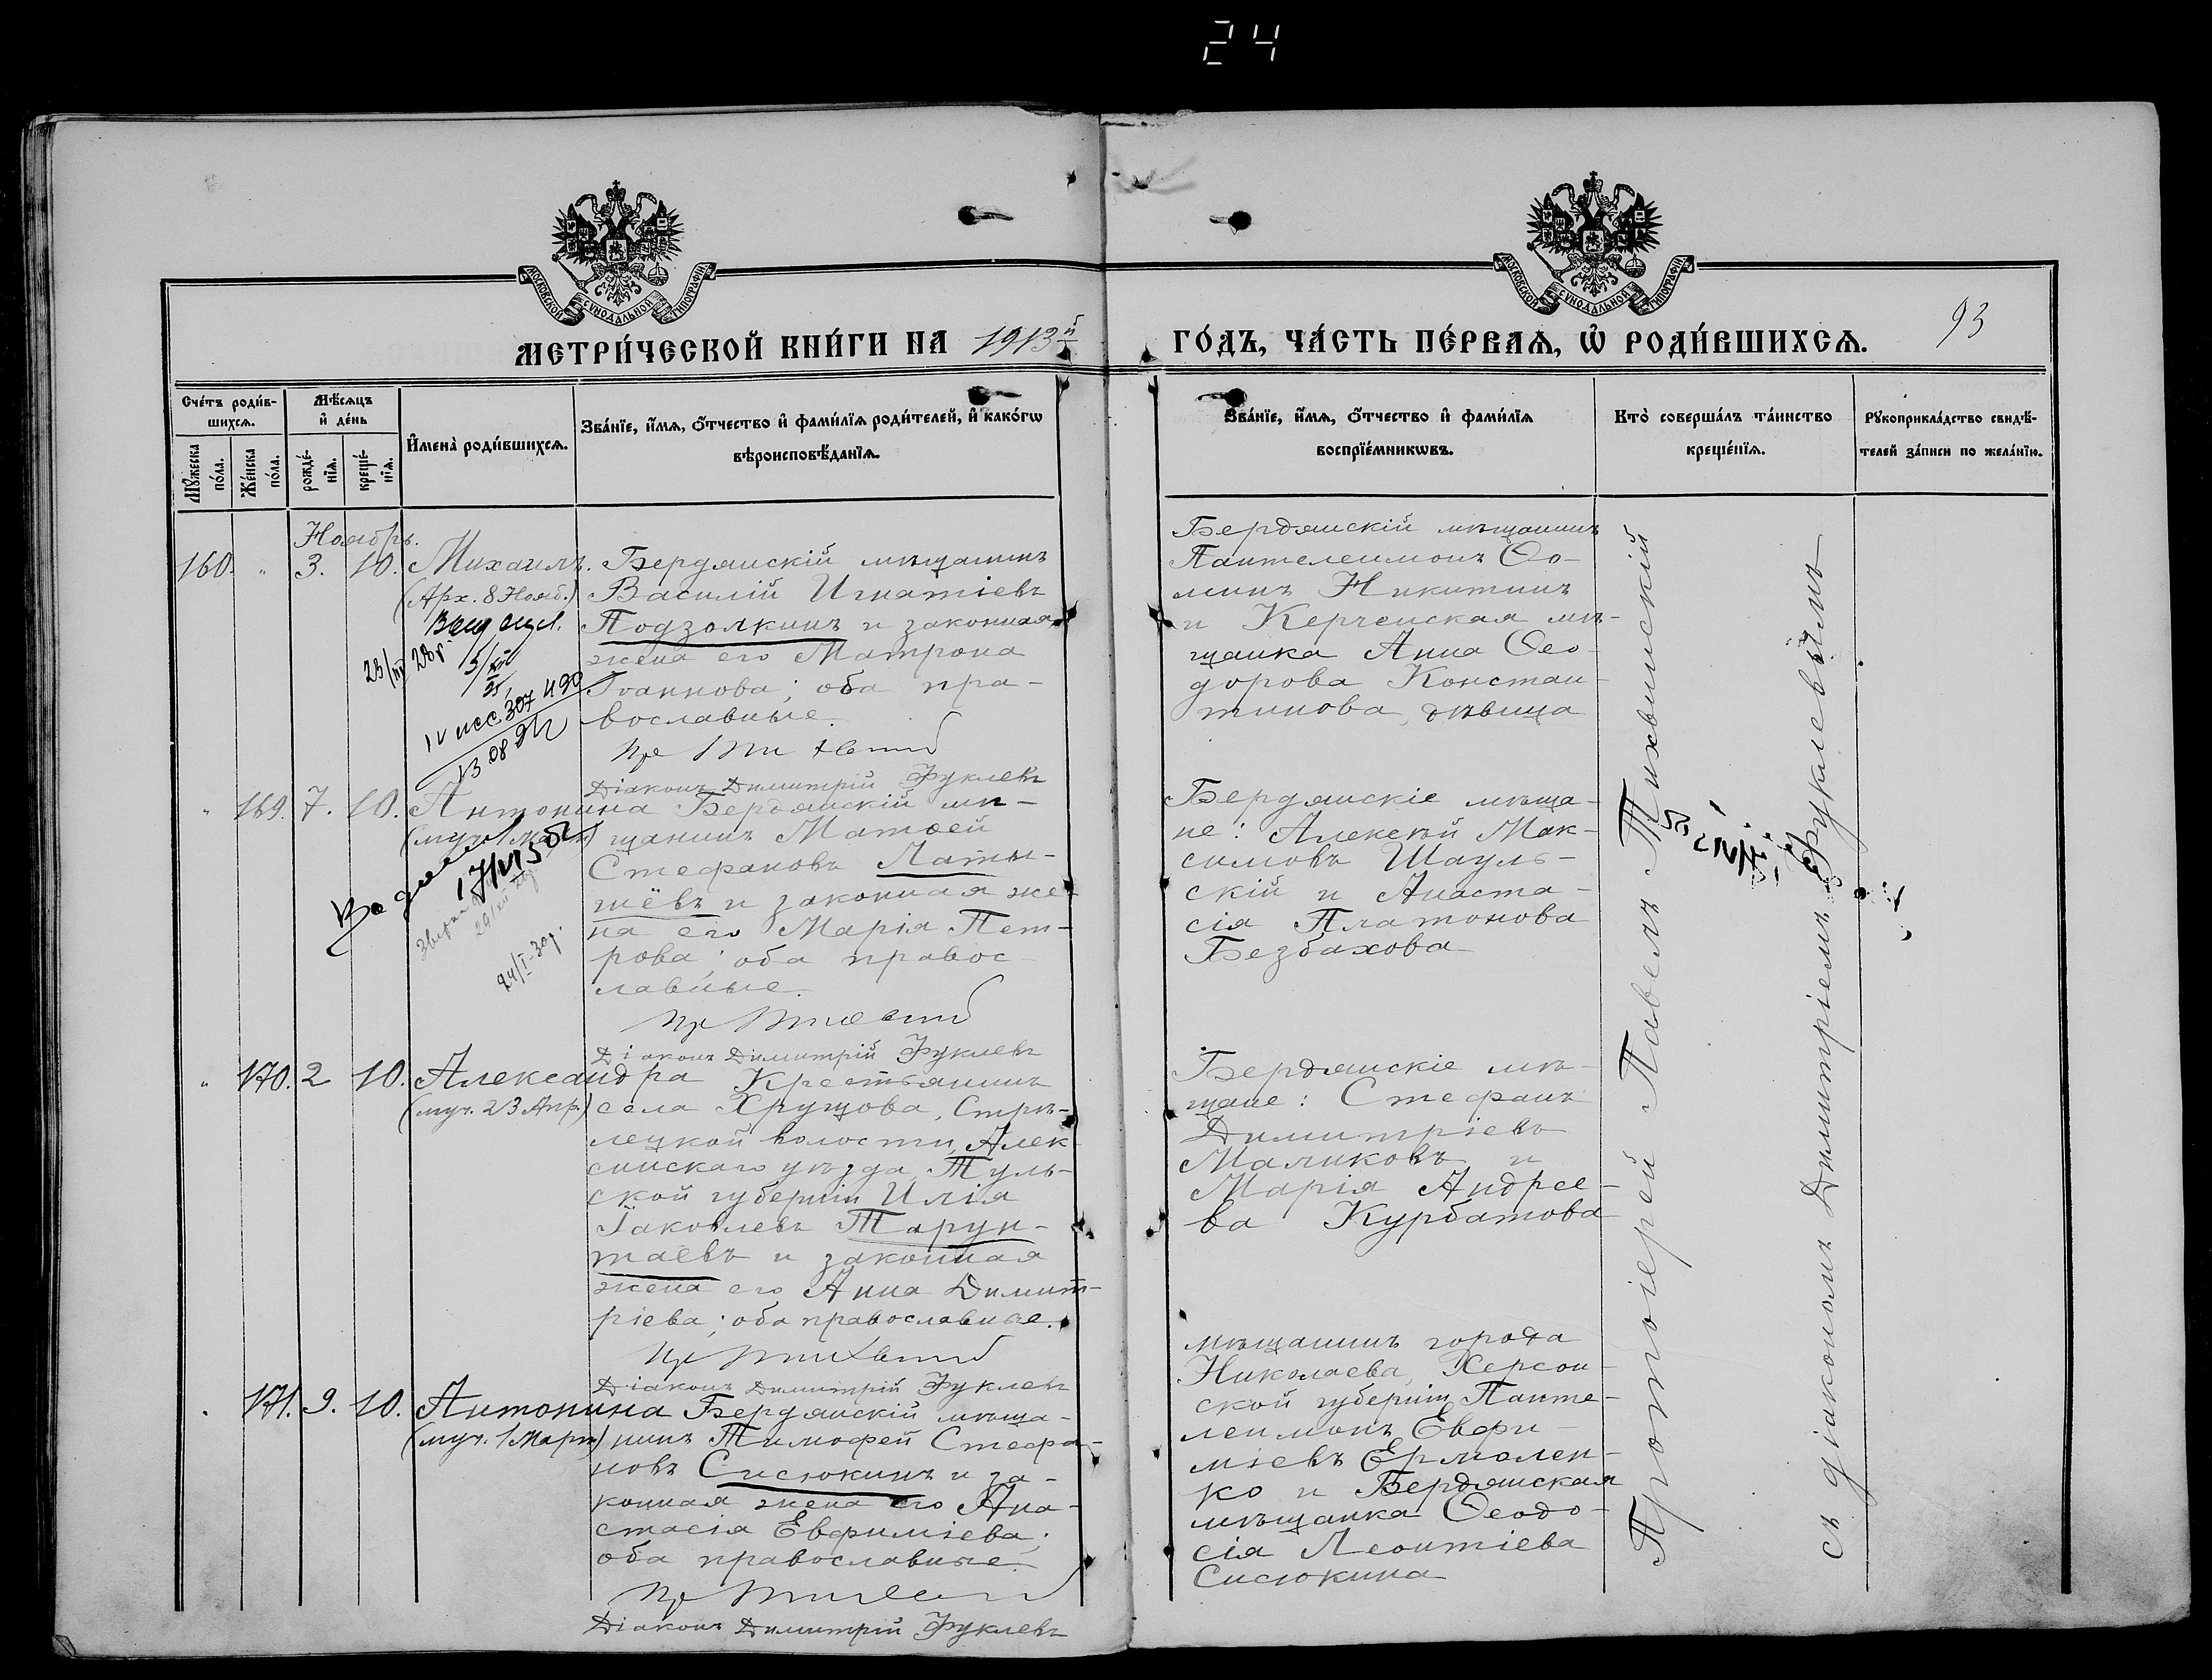 24
МОСКОВСКОЙ СѴНОДАЛЬНОЙ ТИПОГРАФІИ
МОСКОВСКОЙ СѴНОДАЛЬНОЙ ТИПОГРАФІИ
93
МЕТРИ́ЧЕСКОЙ КНИ́ГИ НА 1913й ГО́ДЪ, ЧА́СТЬ ПЕ́РВАѦ, Ѡ҆ РОДИ́ВШИХСѦ.
Сче́тъ роди́в-
шихсѧ.
Мꙋ́жеска по́ла.
Же́нска по́ла.
Мѣ́сѧцъ
и҆ де́нь
рожде́-
нїѧ.
креще́-
нїѧ.
И҆мена̀ роди́вшихсѧ.
Зва́нїе, и҆́мѧ, ѻ҆́тчество и҆ фами́лїѧ роди́телей, и҆ како́гѡ
вѣроисповѣ́данїѧ.
Зва́нїе, и҆́мѧ, ѻ҆́тчество и҆ фами́лїѧ
воспрїе́мникѡвъ.
Кто̀ соверша́лъ та́инство
креще́нїѧ.
Рꙋкоприкла́дство свидѣ́-
телей за́писи по жела́нїю.
Ноябрь.
160. " 3. 10. Михаилъ.
(Арх. 8 Нояб.)
Бердянскій мѣщанинъ
Василій Игнатіевъ
Подзолкинъ и законная
жена его Матрона
Іоаннова; оба пра-
вославные.
Діаконъ Димитрій Фуклевъ
Бердянскій мѣщанинъ
Пантелеимонъ Ѳо-
минъ Никитинъ
и Керченская мѣ-
щанка Анна Ѳео-
дорова Констан-
тинова, дѣвица
" 169. 7. 10. Антонина
Бердянскій мѣ-
щанинъ Матѳей
Стефановъ Латы-
шёвъ и законная же-
на его Марія Пет-
рова; оба правос-
лавные.
24/I-30г.
Діаконъ Димитрій Фуклевъ
Бердянскіе мѣща-
не: Алексѣй Мак-
симовъ Шауль-
скій и Анаста-
сія Платонова
Безбахова
" 170. 2 10. Александра
(муч. 23 Апр.)
Крестьянинъ
села Хрущова, Стрѣ-
лецкой волости, Алек-
синскаго уѣзда, Туль-
ской губерніи Илія
Іаковлевъ Тарун-
таевъ и законная
жена его Анна Димит-
ріева; оба православные.
Діаконъ Димитрій Фуклевъ
Бердянскіе мѣ-
щане: Стефанъ
Димитріевъ
Маликовъ и
Марія Андрее-
ва Курбатова
171. 9. 10. Антонина
(муч. 1 Марта)
Бердянскій мѣща-
нинъ Тимофей Стефа-
новъ Сисюкинъ и за-
конная жена его Ана-
стасія Евфиміева;
оба православные.
Діаконъ Димитрій Фуклевъ
мѣщанинъ города
Николаева, Херсон-
ской губерніи, Панте-
леимонъ Евфи-
міевъ Ермолен-
ко и Бердянская
мѣщанка Ѳеодо-
сія Леонтіева
Сисюкина
Протоіерей Павелъ Тихвинскій
съ діакономъ Димитріемъ Фуклевымъ